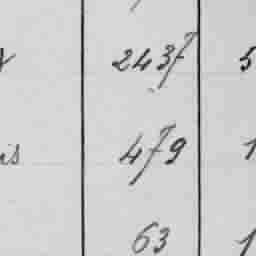 2437 5
is 479 1
63 1